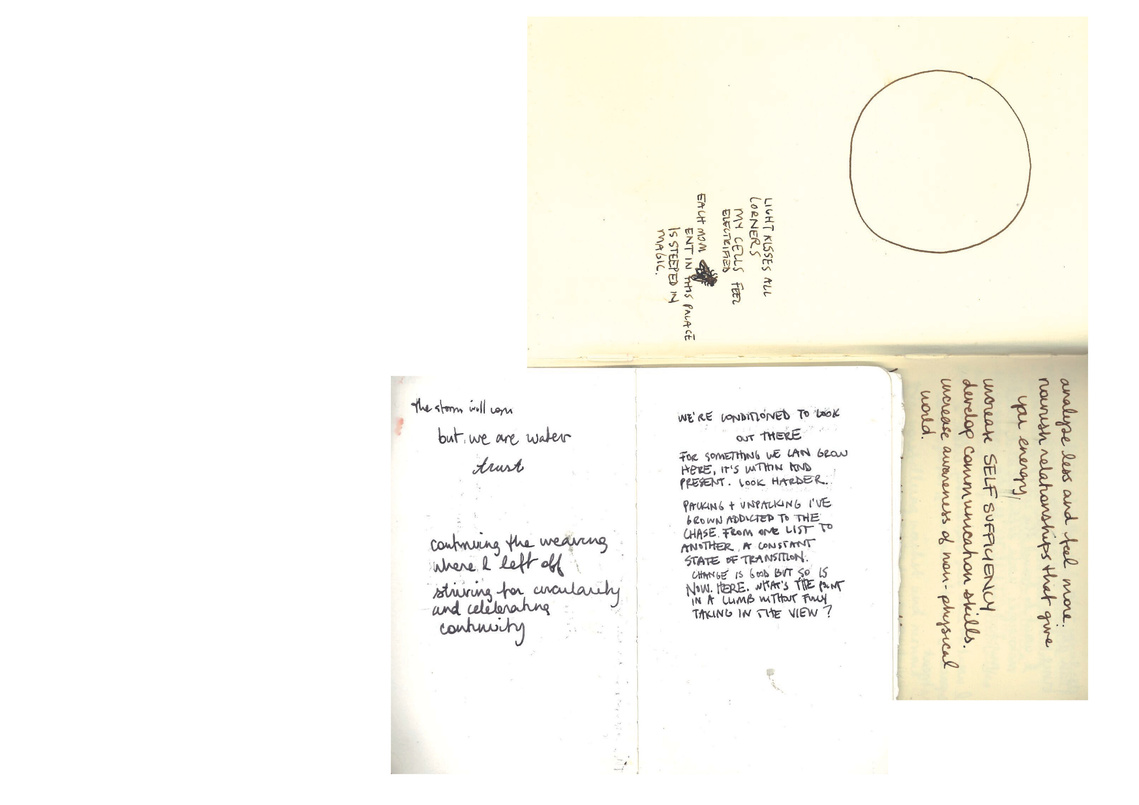 LIGHT KISSES ALL
CORNERS
MY CELLS FEEL
ELECTRIFIED
EACH MOM
ENT IN THIS PALACE
IS STEEPED IN
MAGIC.
analyze less and feel more.
nourish relationships that give
you energy,
increase SELF SUFFICIENCY
develop communication skills.
increase awareness of non-physical
world.
the storm will
but, we are water
trust
continuing the weaving
where I left off
striving for circularity
and celebrating
continuity
WE'RE CONDITIONED TO LOOK
OUT THERE
FOR SOMETHING WE CAN GROW
HERE, IT'S WITHIN AND
PRESENT. LOOK HARDER.
PACKING + UNPACKING I'VE
GROWN ADDICTED TO THE
CHASE. FROM ONE LIST TO
ANOTHER, A CONSTANT
STATE OF TRANSITION.
CHANGE IS GOOD BUT SO IS
NOW. HERE. WHAT'S THE POINT
IN A CLIMB WITHOUT FULLY
TAKING IN THE VIEW?